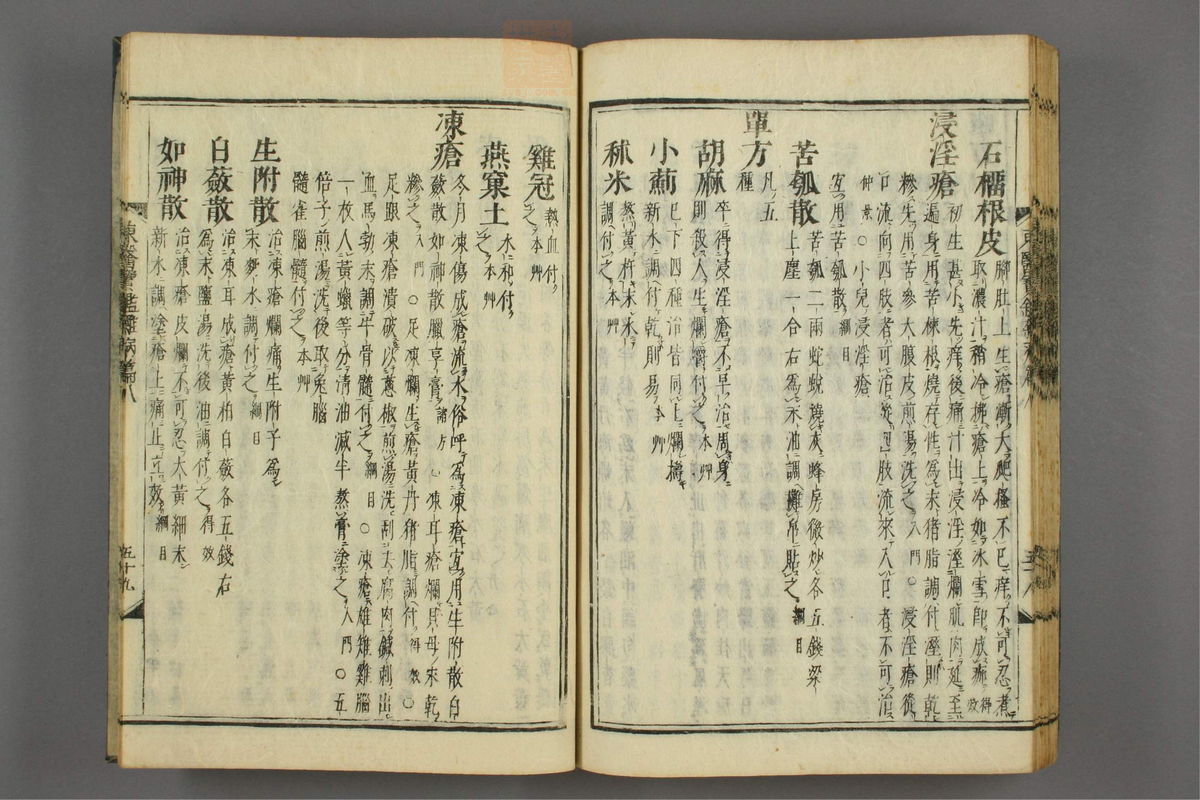 石榴根皮
脚肚上生瘡漸大飽搔不已痒不可忍者
取濃汁稍冷拂瘡上冷如冰雪即成痂得效
浸淫瘡
初生甚小先痒後痛汁出浸淫溼爛肌肉延至
遍身用苦楝根燒存性爲末猪脂調付溼則乾
糝先用苦參大腹皮煎湯洗之入門○浸淫瘡從
口流向四肢者可治從四肢流來入口者不可治
仲景○小兒浸淫瘡
宜用苦瓠散綱目
苦瓠散
苦瓠二兩蛇蛻燒灰蜂房微炒各五錢梁
上塵一合右爲末油調攤帛貼之綱目
單方
凡五
種
胡麻
卒得浸淫瘡不早治周身
則殺人生爛嚼付之本艸
小薊
已下四種治皆同上爛擣
新水調付乾則易本艸
秫米
熬黃杵末水
調付之本艸
雞冠
熱血付
之本艸
燕窠土
水和付
之本艸
凍瘡
冬月凍傷成瘡流水俗呼爲凍瘡宜用生附散白
蘞散如神散臘享膏諸方○凍耳瘡爛貝母末乾
糝之入門○足凍爛生瘡黃丹猪脂調付得效○
足跟凍瘡潰破以葱椒煎湯洗刮去腐肉鍼刺出
血馬勃末調牛骨髓付之綱目○凍瘡雄雉雞腦
一枚人黃蠟等分清油減半熬膏塗之入門○五
倍子煎湯洗後取兔腦
髓雀腦髓付之本艸
生附散
治凍瘡爛痛生附子爲
末麪水調付之綱目
白蘞散
治凍耳成瘡黃柏白蘞各五錢右
爲末鹽湯洗後油調付之得效
如神散
治凍瘡皮爛不可忍大黃細末
新水調塗瘡上痛止立效綱目
東醫寶鑑雜病篇八
五十九